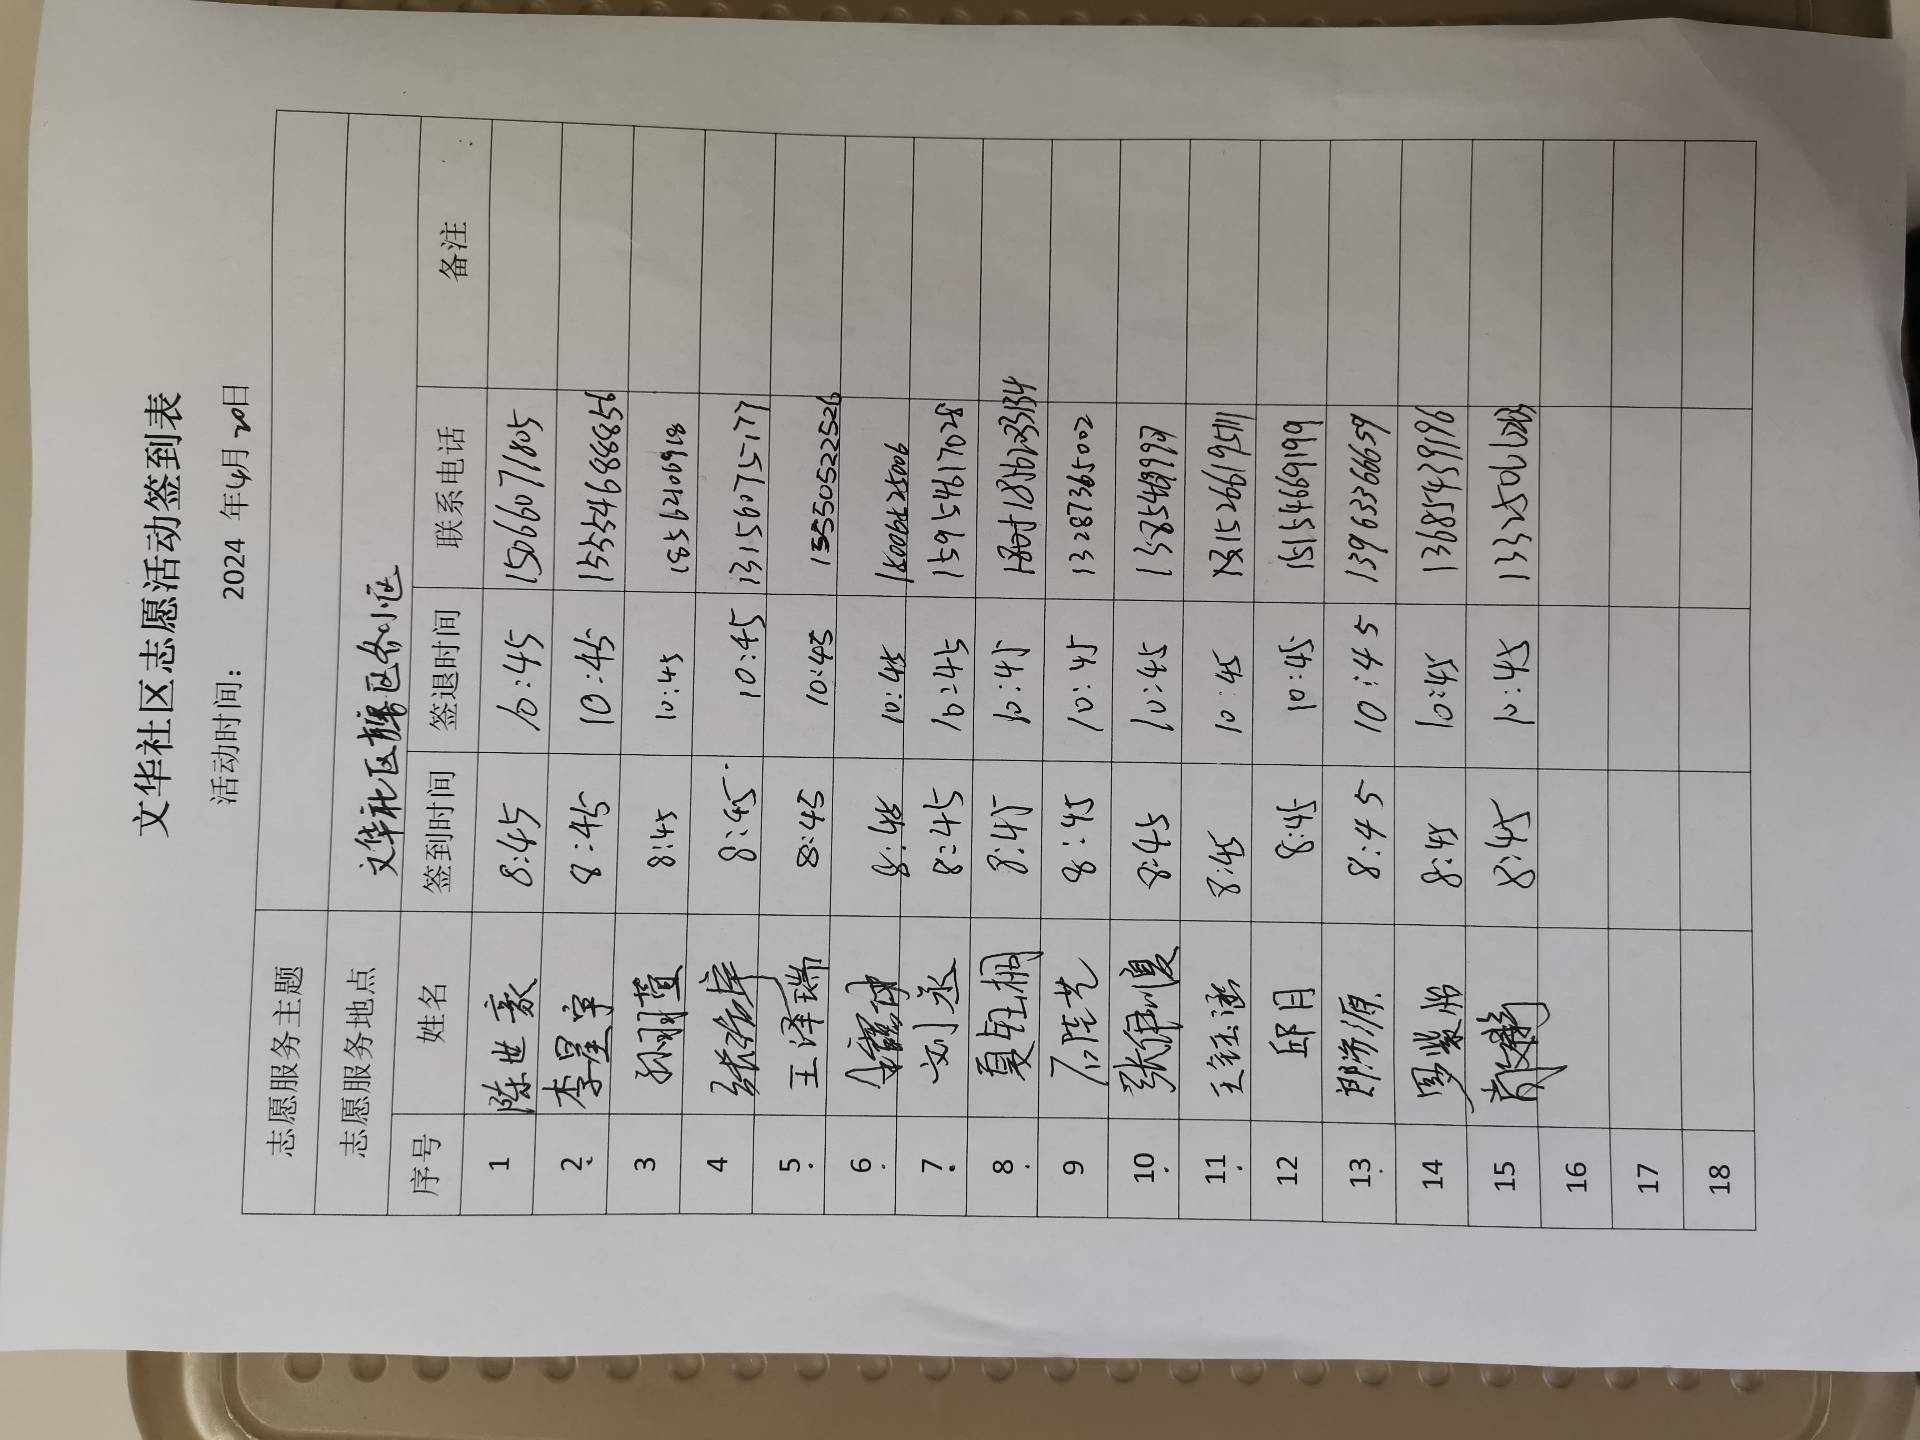 文华社区志愿活动签到表
活动时间： 2024 年 4月 20日
志愿服务主题
志愿服务地点 文华社区辖区各小区
序号 姓名 签到时间 签退时间 联系电话 备注
1 陈世豪 8:45 10:45 15066071805
2 李星宇 8:45 10:45 15554688856
3 8:45 10:45 18562106918
4 8:45 10:45 13156075177
5 王泽瑞 8:45 10:45 13550522526
6 8:45 10:45
7 刘丞 8:45 10:45 15954617028
8 夏钰桐 8:45 10:45 18562033134
9 石陆艺 8:45 10:45 13287365002
10 8:45 10:45
11 王钰涵 8:45 10:45 15266195111
12 邱月 8:45 10:45 15154669199
13 8:45 10:45 13963366659
14 周紫彤 8:45 10:45 13685439196
15 8:45 10:45
16
17
18